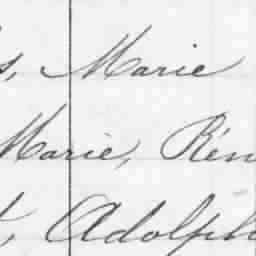 s, Marie
Marie, Rén
t, Adolph